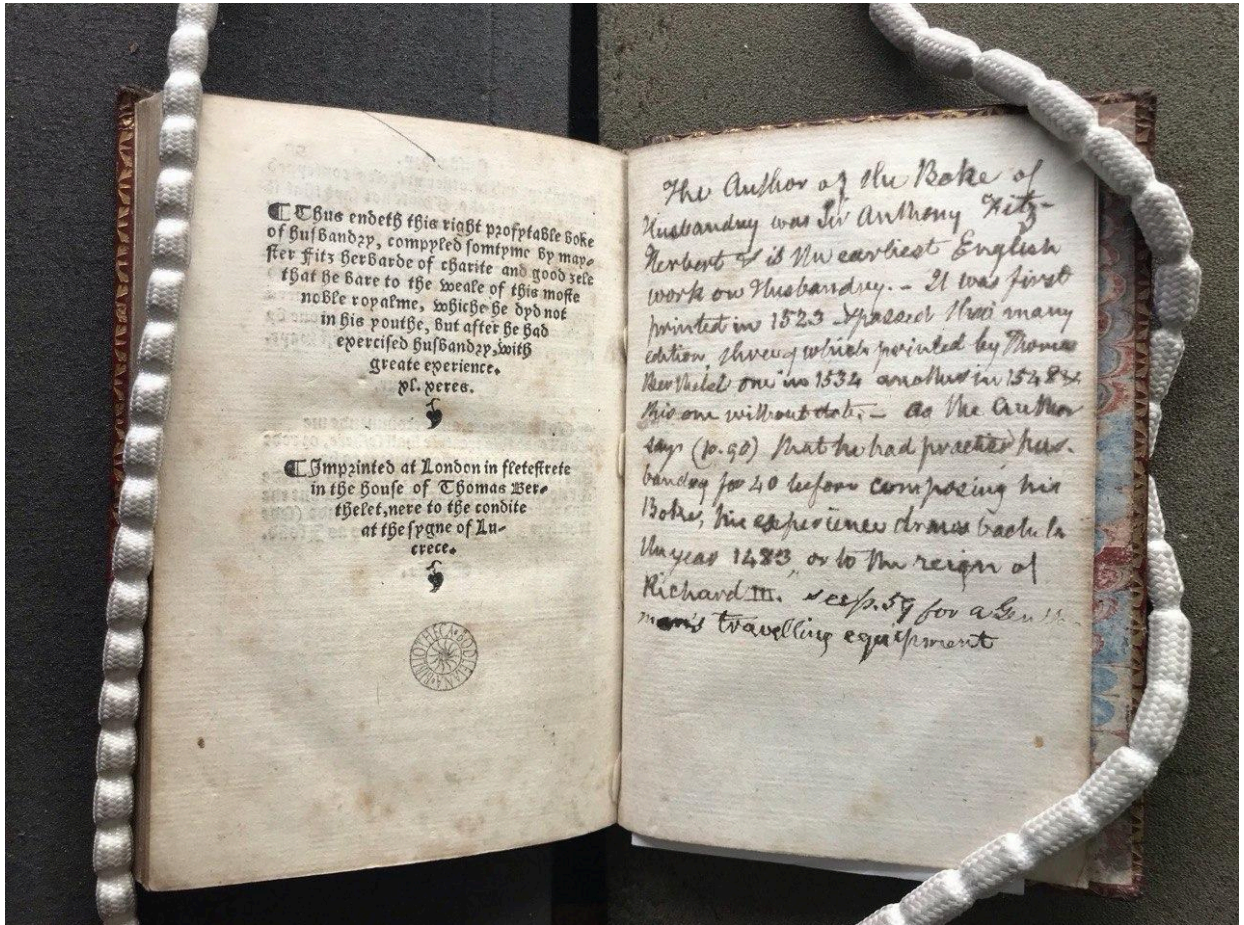 ¶ Thus endeth this right profytable boke
of husbandry, compyled somtyme by may-
ster Fitz herbarde of charite and good zele
that he bare to the weale of this moste
noble royalme, whiche he dyd not
in his youthe, but after he had
exercised husbandry, with
greate experience.
xl. yeres.
¶ Imprinted at London in fletestrete
in the house of Thomas Ber-
thelet, nere to the condite
at the sygne of Lu-
crece.
BIBLIOTHECA BODLEIANA
The Author of the Boke of
Husbandry was Sir Anthony Fitz-
Herbert & is the earliest English
work on Husbandry. - It was first
printed in 1523 & passed thro' many
edition, three of which printed by Thomas
Berthelet one in 1534 another in 1548 &
this one without date. - As the Author
says (p. 90) that he had practised hus-
bandry for 40 before composing his
Boke, his experience draws back to
the year 1483, or to the reign of
Richard III. see p. 59 for a Gentle-
man's travelling equipment